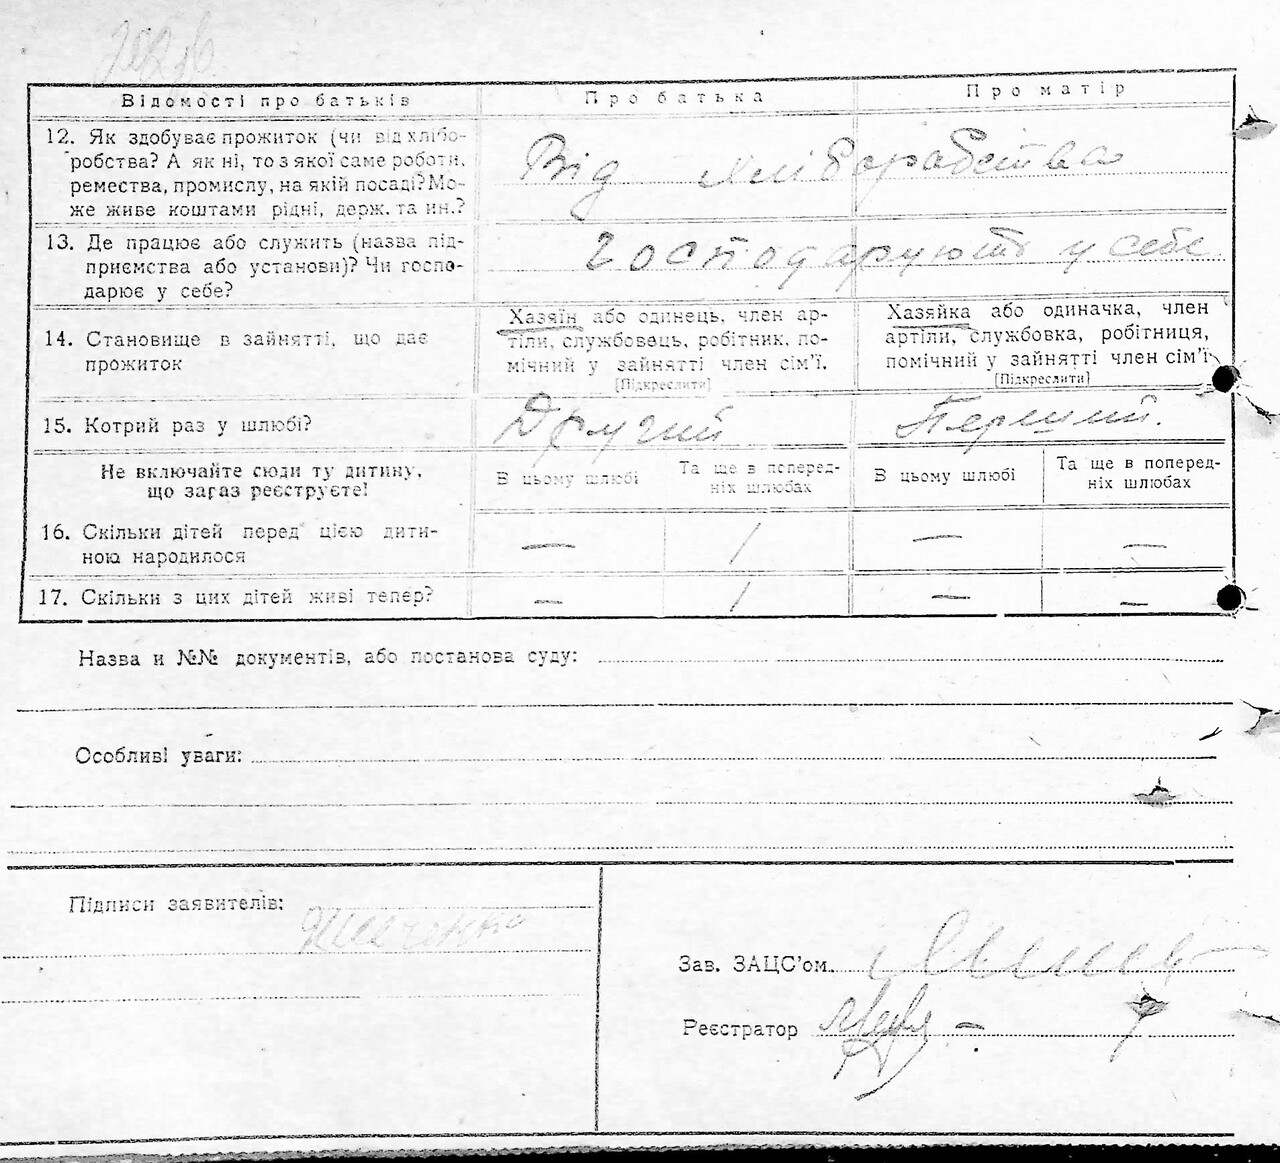 Відомості про батьків Про батька Про матір
12. Як здобуває прожиток (чи від хлібо-
робства? А як ні, то з якої саме роботи,
ремества, промислу, на якій посаді? Мо-
же живе коштами рідні, держ. та ин.?
Від хліборобства
13. Де працює або служить (назва під-
приємства або установи)? Чи госпо-
дарює у себе?
господарують у себе
14. Становище в зайнятті, що дає
прожиток
Хазяїн або одинець, член ар-
тіли, службовець, робітник, по-
мічний у зайнятті член сім'ї.
[Підкреслити]
Хазяйка або одиначка, член
артіли, службовка, робітниця,
помічний у зайнятті член сім'ї
[Підкреслити]
15. Котрий раз у шлюбі? Другий Перший.
Не включайте сюди ту дитину,
що зараз реєструєте!
В цьому шлюбі
Та ще в поперед-
ніх шлюбах
В цьому шлюбі
Та ще в поперед-
ніх шлюбах
16. Скільки дітей перед цією дити-
ною народилося
— 1 — —
17. Скільки з цих дітей живі тепер? — 1 — —
Назва и №№ документів, або постанова суду:
Особливі уваги:
Підписи заявителів:
Зав. ЗАЦС'ом
Реєстратор